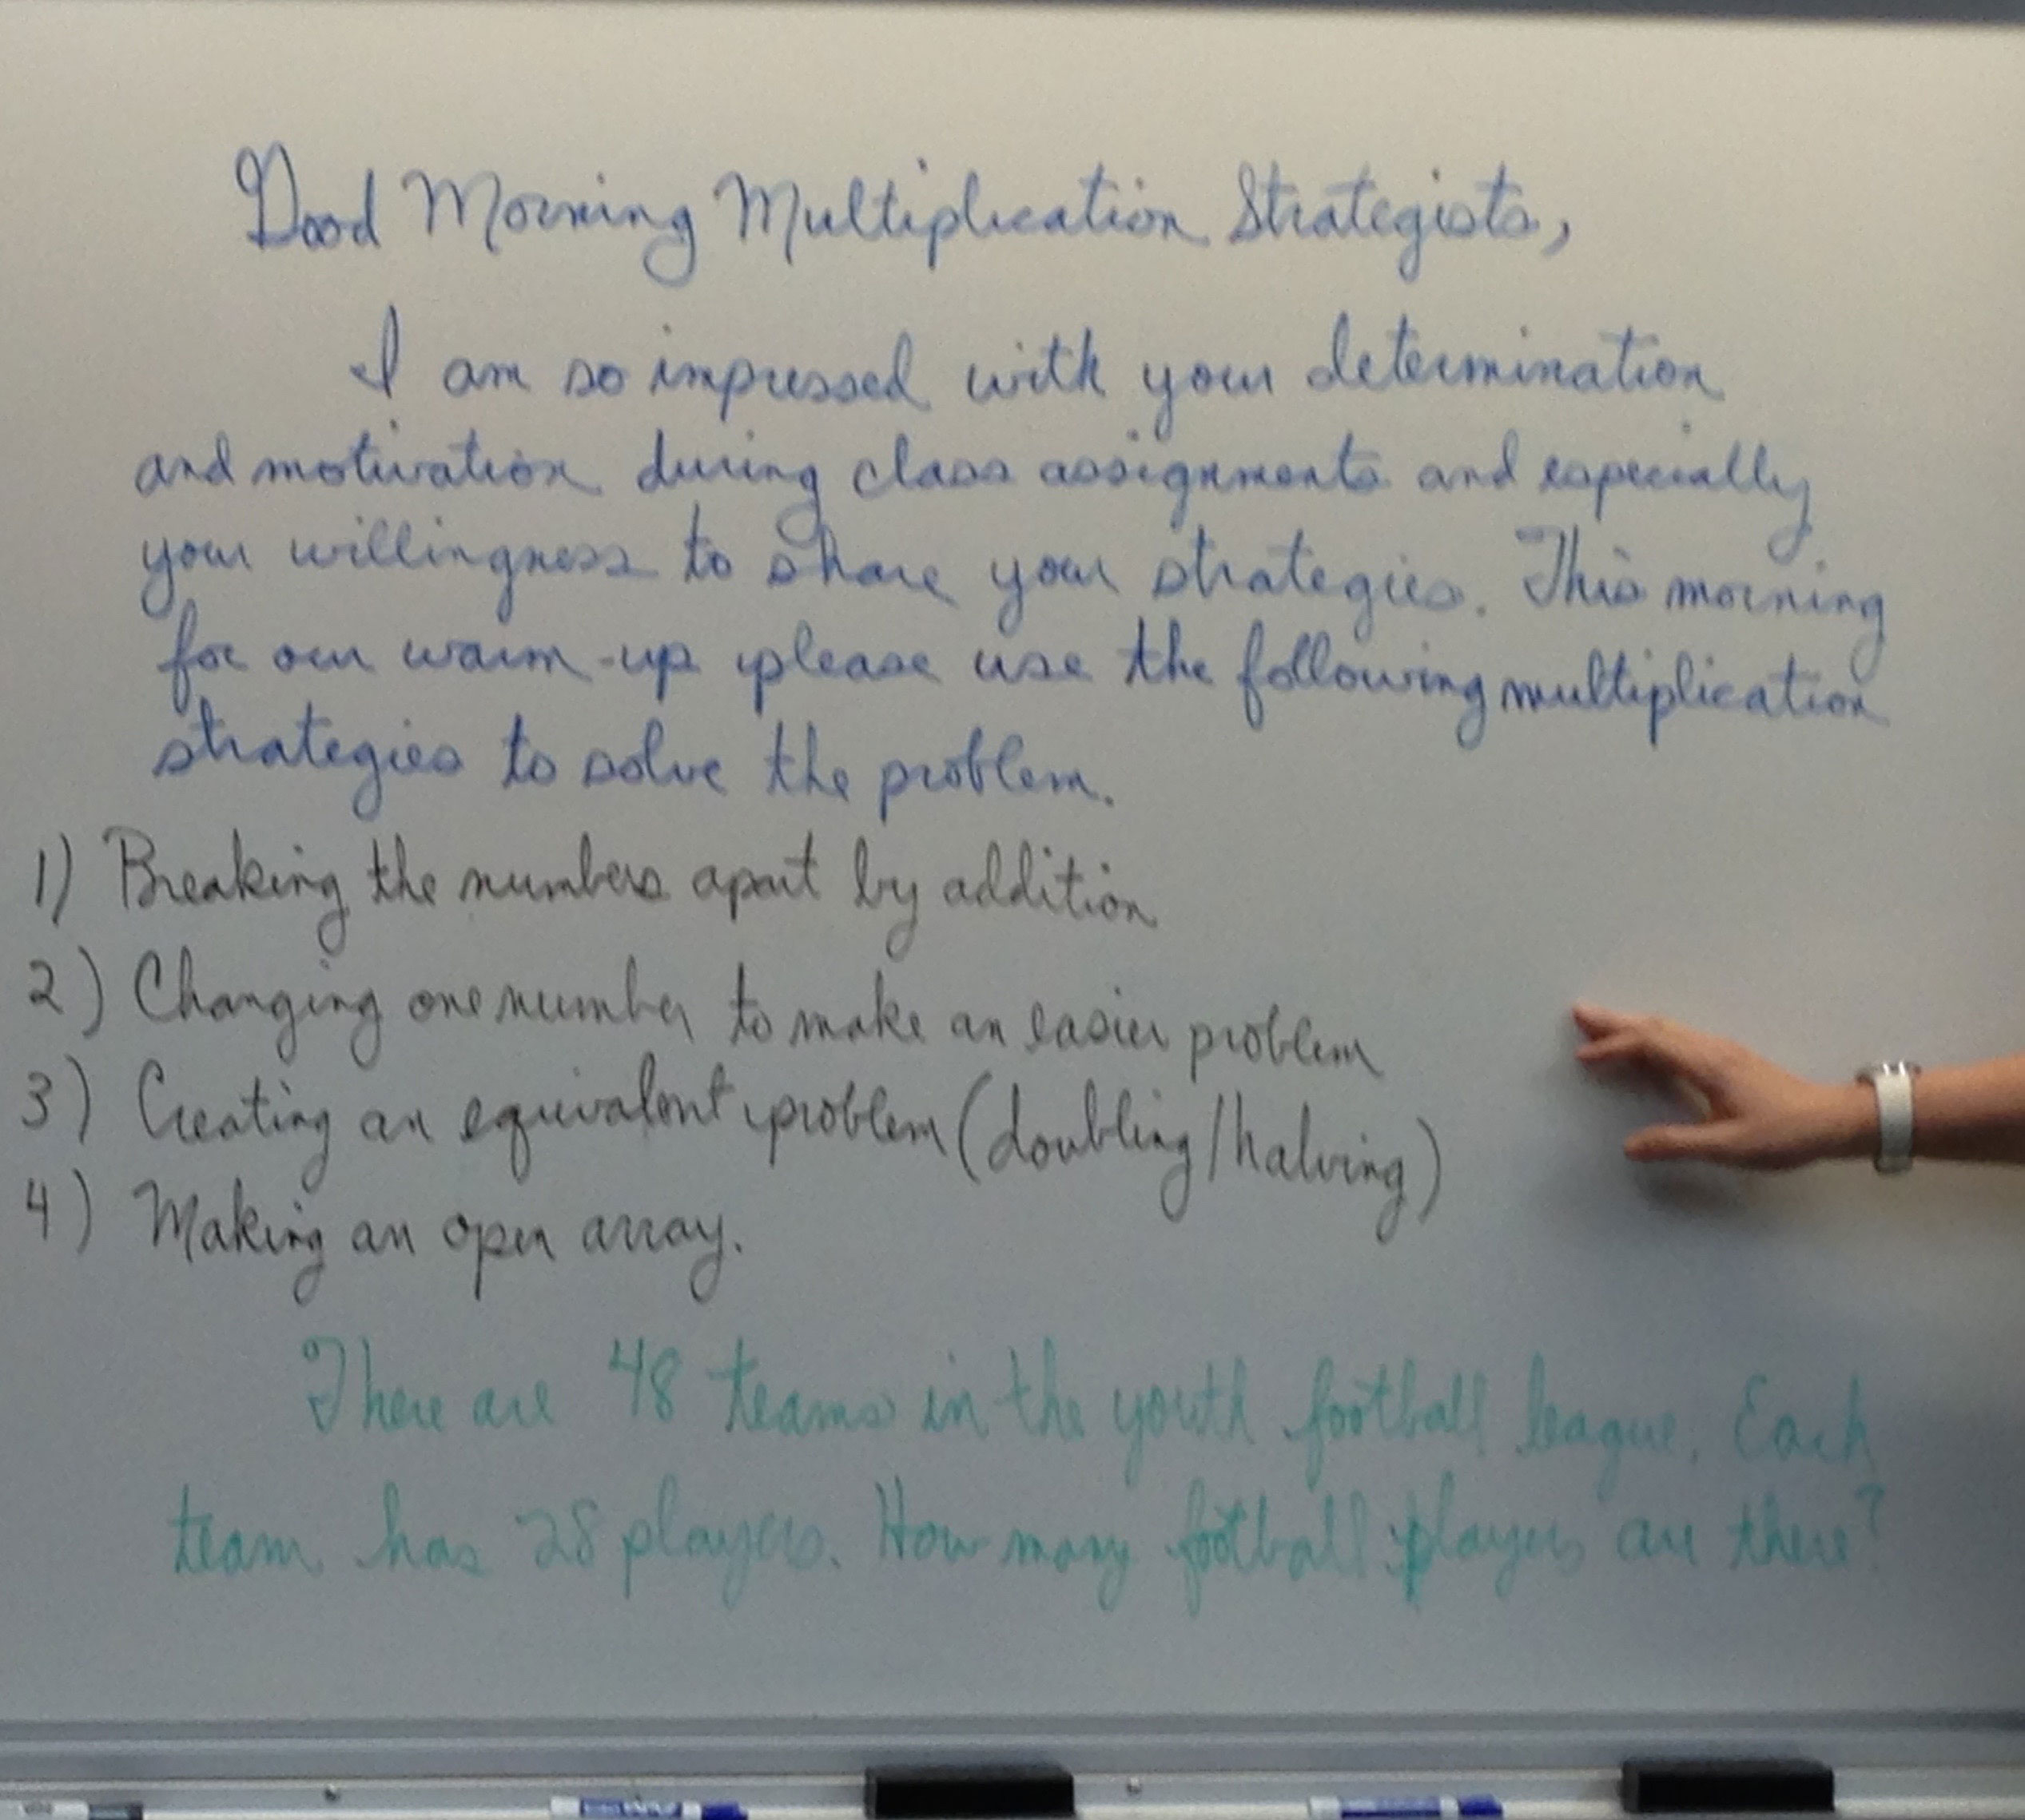 Good Morning Multiplication Strategists,
I am so impressed with your determination
and motivation during class assignments and especially
your willingness to share your strategies. This morning
for our warm-up please use the following multiplication
strategies to solve the problem.
1) Breaking the numbers apart by addition
2) Changing one number to make an easier problem
3) Creating an equivalent problem (doubling/halving)
4) Making an open array.
There are 48 teams in the youth football league. Each
team has 28 players. How many football players are there?